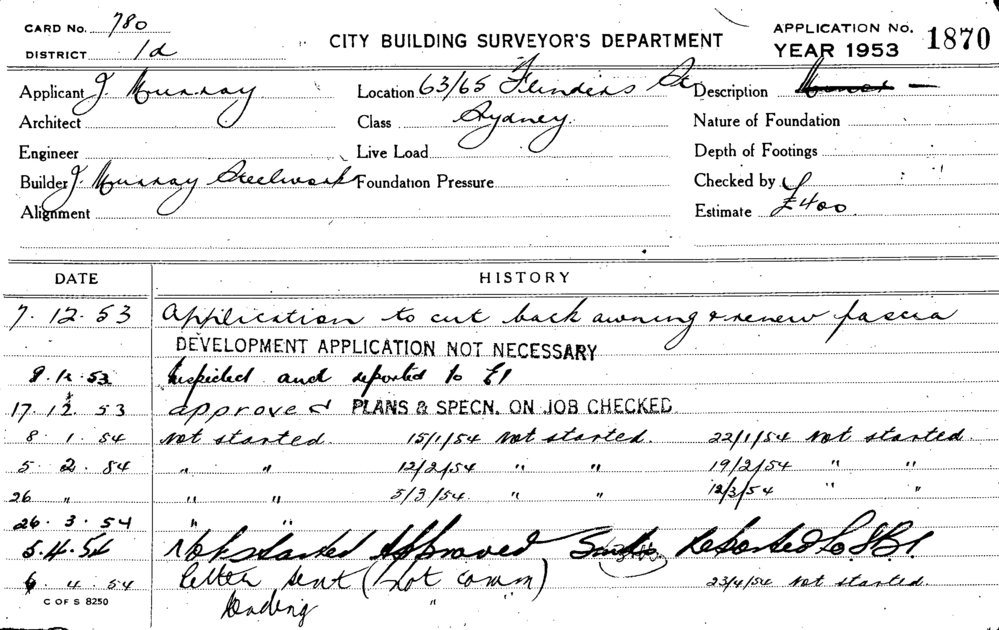 CARD No. 780
DISTRICT 1d
CITY BUILDING SURVEYOR'S DEPARTMENT
APPLICATION No. 1870
YEAR 1953
Applicant J Murray
Location 63/65 Flinders St
Description
Architect
Class Sydney
Nature of Foundation
Engineer
Live Load
Depth of Footings
Builder J Murray Steelworks
Foundation Pressure
Checked by
Alignment
Estimate £400
DATE HISTORY
7. 12. 53 Application to cut back awning & renew fascia
DEVELOPMENT APPLICATION NOT NECESSARY
9. 12. 53 Inspected and reported to
17. 12. 53 approved PLANS & SPECN. ON JOB CHECKED
8. 1. 54 Not started. 15/1/54 Not started. 22/1/54 Not started.
5. 2. 54 " " 12/2/54 " " 19/2/54 " "
26 " " " 5/3/54 " " 12/3/54 " "
26. 3. 54 " "
5.4.54 Not started Approved Reported to
6. 4. 54 letter sent (not comm) 23/4/54 Not started.
C OF S 8250
"